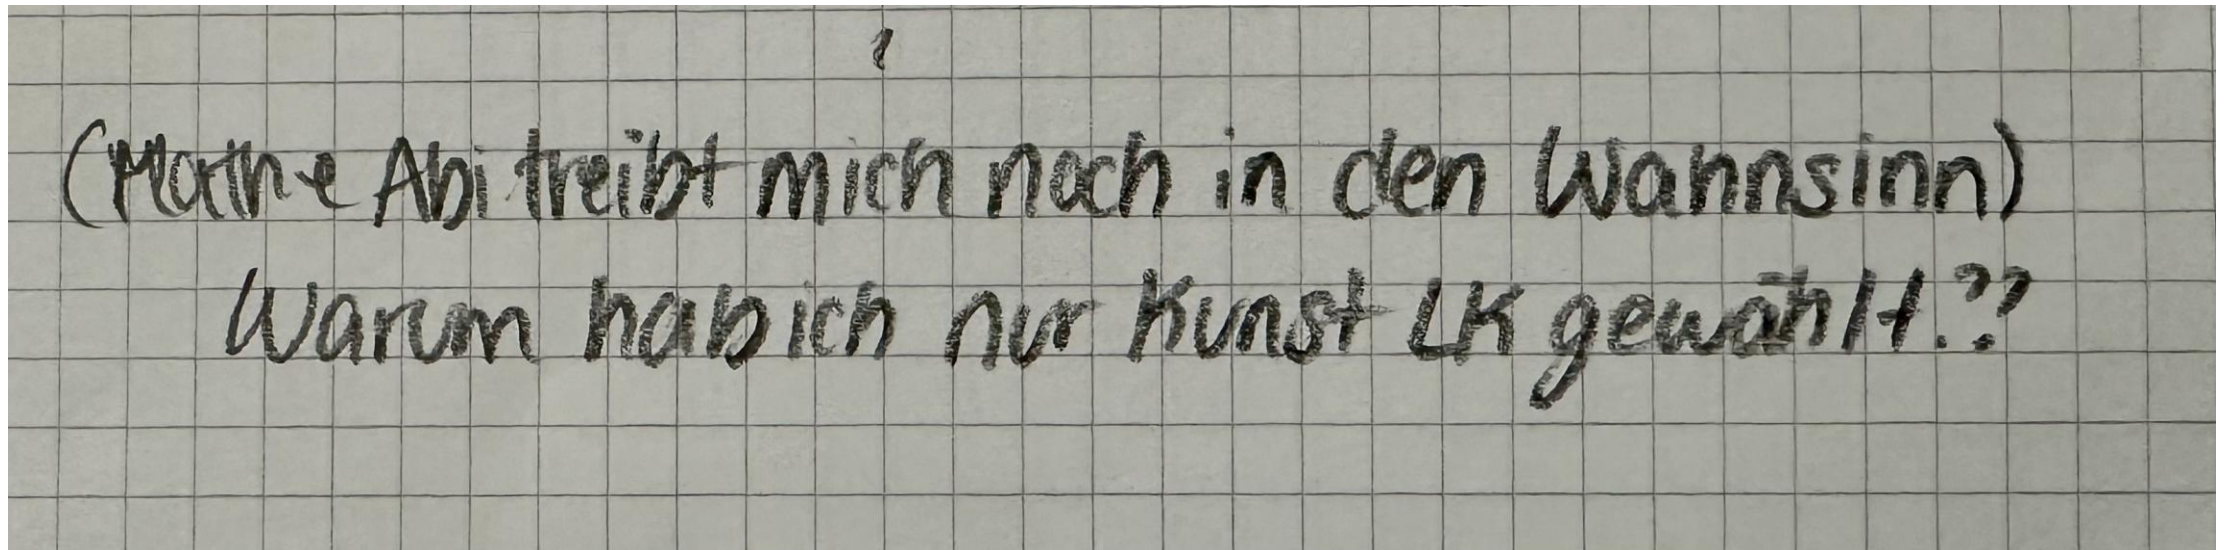 (Mathe Abi treibt mich noch in den Wahnsinn)
Warum hab ich nur Kunst LK gewählt.??